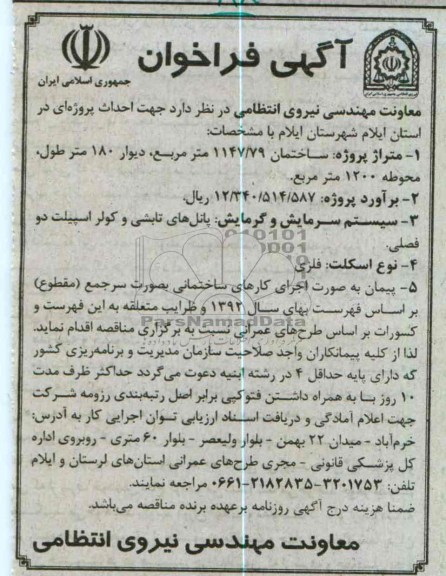 آگهی فراخوان
جمهوری اسلامی ایران
معاونت مهندسی نیروی انتظامی در نظر دارد جهت احداث پروژه‌ای در
استان ایلام شهرستان ایلام با مشخصات:
۱- متراژ پروژه: ساختمان ۱۱۴۷/۷۹ متر مربع، دیوار ۱۸۰ متر طول،
محوطه ۱۲۰۰ متر مربع.
۲- برآورد پروژه: ۱۲/۳۴۰/۵۱۴/۵۸۷ ریال.
۳- سیستم سرمایش و گرمایش: پانل‌های تابشی و کولر اسپیلت دو
فصلی.
۴- نوع اسکلت: فلزی
۵- پیمان به صورت اجرای کارهای ساختمانی بصورت سرجمع (مقطوع)
بر اساس فهرست بهای سال ۱۳۹۲ و ظرایب متعلقه به این فهرست و
کسورات بر اساس طرح‌های عمرانی نسبت به برگزاری مناقصه اقدام نماید.
لذا از کلیه پیمانکاران واجد صلاحیت سازمان مدیریت و برنامه‌ریزی کشور
که دارای پایه حداقل ۴ در رشته ابنیه دعوت می‌گردد حداکثر ظرف مدت
۱۰ روز بنا به همراه داشتن فتوکپی برابر اصل رتبه‌بندی رزومه شرکت
جهت اعلام آمادگی و دریافت اسناد ارزیابی توان اجرایی کار به آدرس:
خرم‌آباد - میدان ۲۲ بهمن - بلوار ولیعصر - بلوار ۶۰ متری - روبروی اداره
کل پزشکی قانونی - مجری طرح‌های عمرانی استان‌های لرستان و ایلام
تلفن: ۳۲۰۱۷۵۳-۲۱۸۲۸۳۵-۰۶۶۱ مراجعه نمایند.
ضمنا هزینه درج آگهی روزنامه برعهده برنده مناقصه می‌باشد.
معاونت مهندسی نیروی انتظامی
ParsNamadData